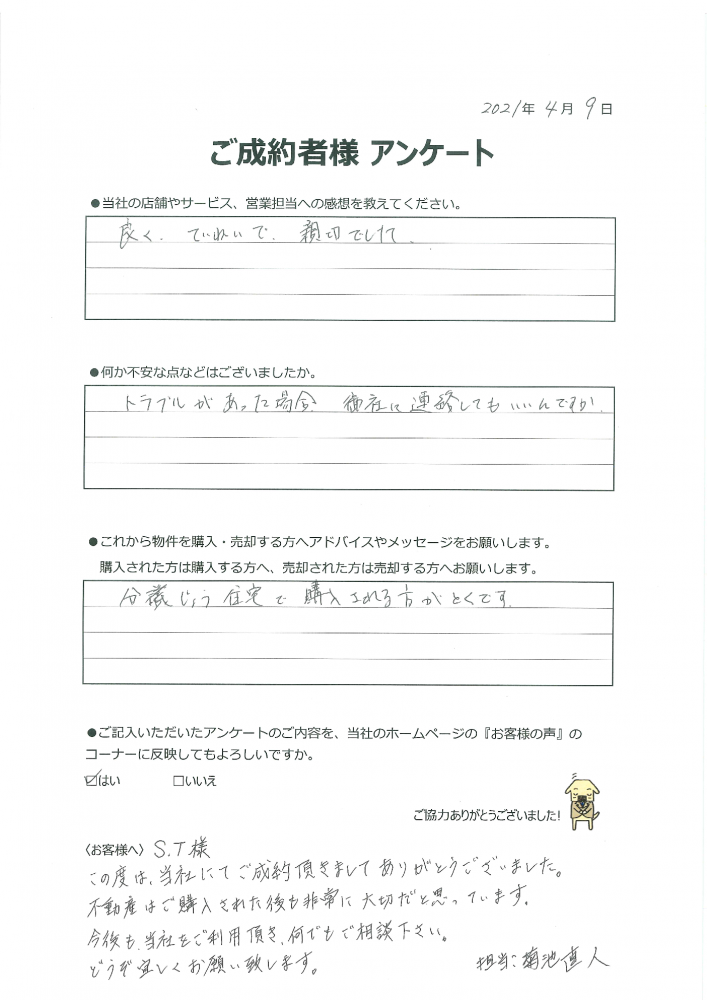 2021年 4月 9日
ご成約者様 アンケート
●当社の店舗やサービス、営業担当への感想を教えてください。
良く、ていねいで、親切でした。
●何か不安な点などはございましたか。
トラブルがあった場合 御社に連絡してもいいんですか。
●これから物件を購入・売却する方へアドバイスやメッセージをお願いします。
購入された方は購入する方へ、売却された方は売却する方へお願いします。
分譲じょう住宅で購入される方がとくです。
●ご記入いただいたアンケートのご内容を、当社のホームページの『お客様の声』の
コーナーに反映してもよろしいですか。
☑はい □いいえ
ご協力ありがとうございました!
〈お客様へ〉 S.T様
この度は、当社にてご成約頂きましてありがとうございました。
不動産はご購入された後も非常に大切だと思っています。
今後も、当社をご利用頂き、何でもご相談下さい。
どうぞ宜しくお願い致します。
担当:菊池直人